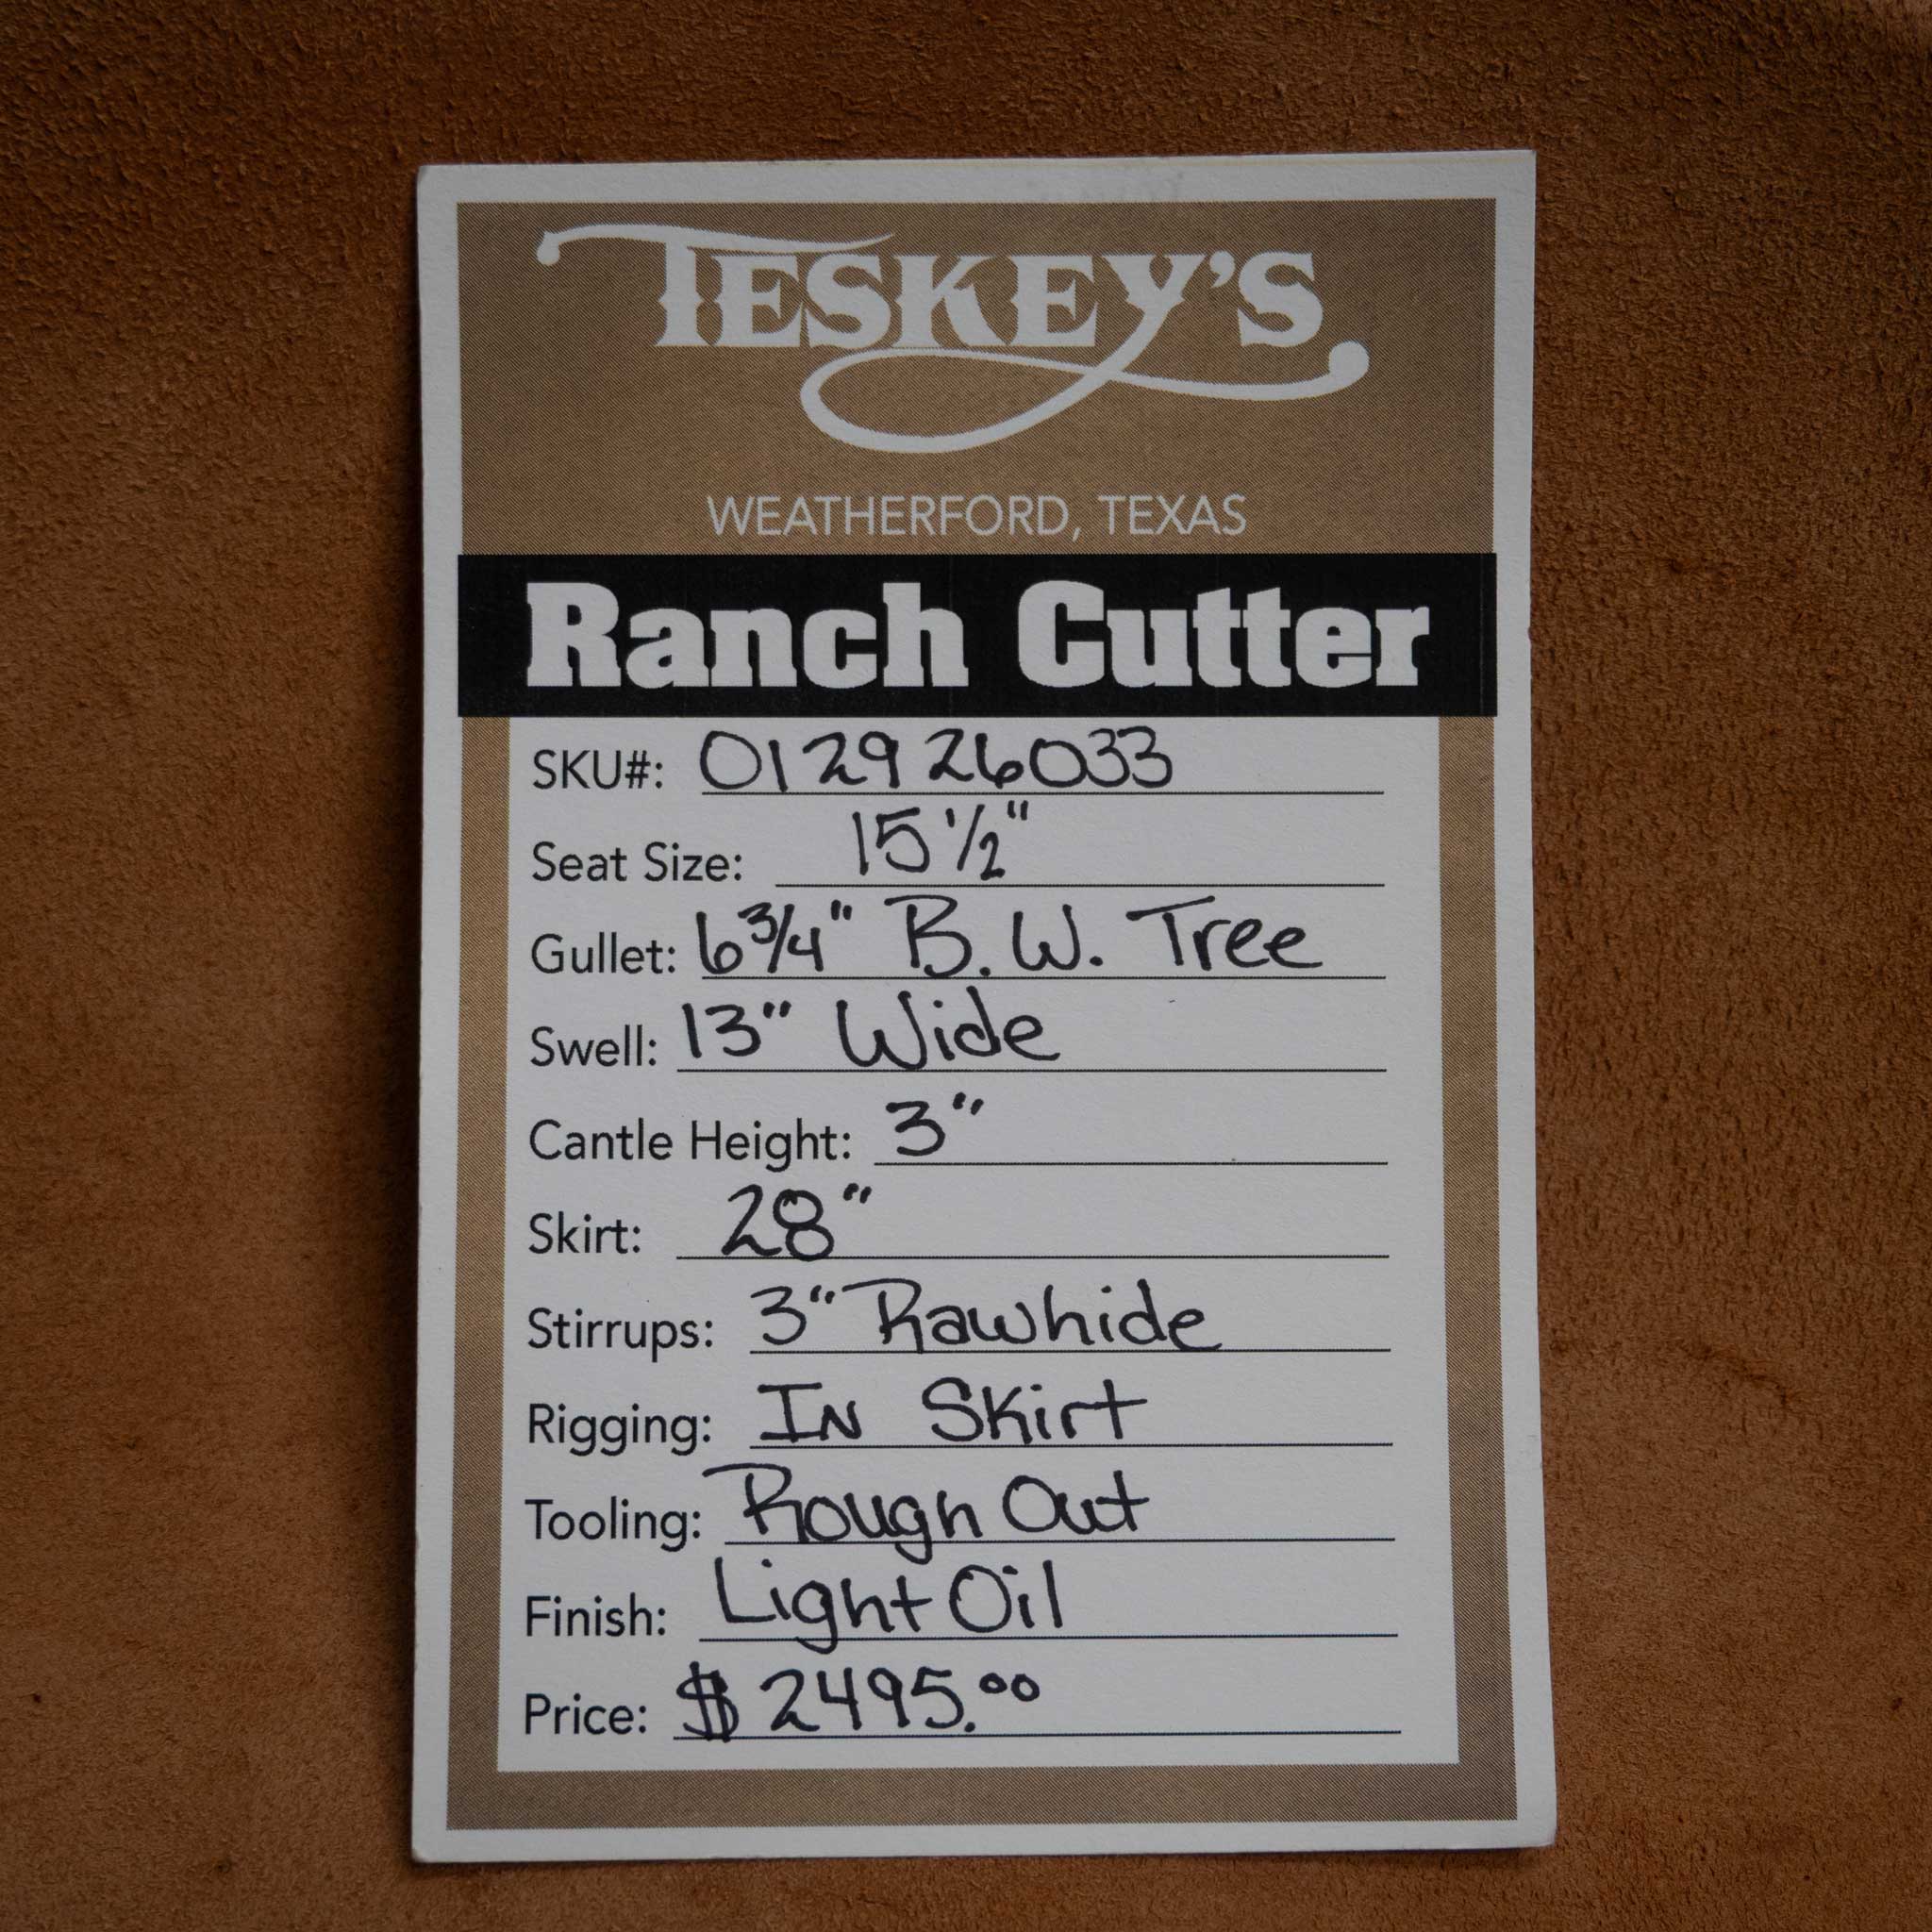 TESKEY'S
WEATHERFORD, TEXAS
Ranch Cutter
SKU#: 012926033
Seat Size: 15 1/2"
Gullet: 6 3/4" B.W. Tree
Swell: 13" Wide
Cantle Height: 3"
Skirt: 28"
Stirrups: 3" Rawhide
Rigging: IN Skirt
Tooling: Rough Out
Finish: Light Oil
Price: $2495.00